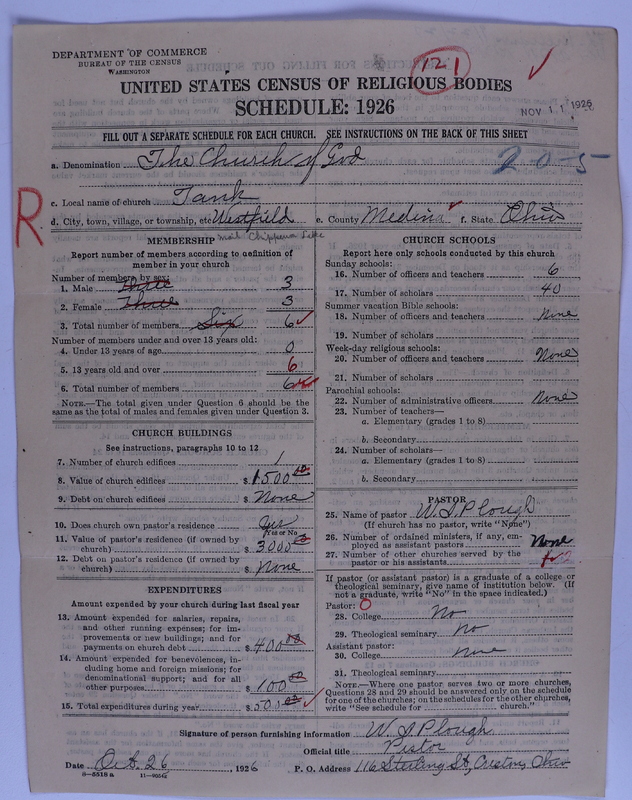 DEPARTMENT OF COMMERCE
BUREAU OF THE CENSUS
WASHINGTON
121
UNITED STATES CENSUS OF RELIGIOUS BODIES
SCHEDULE: 1926
NOV 11 1926
FILL OUT A SEPARATE SCHEDULE FOR EACH CHURCH. SEE INSTRUCTIONS ON THE BACK OF THIS SHEET
a. Denomination The Church of God
20-5
c. Local name of church Tank
R
d. City, town, village, or township, etc Westfield e. County Medina f. State Ohio
mail Chippewa Lake
MEMBERSHIP
Report number of members according to definition of
member in your church
Number of members by sex:
1. Male Three 3
2. Female Three 3
3. Total number of members Six 6
Number of members under and over 13 years old:
4. Under 13 years of age 0
5. 13 years old and over 6
6. Total number of members 6
NOTE.—The total given under Question 6 should be
same as the total of males and females given under Question 3.
CHURCH BUILDINGS
See instructions, paragraphs 10 to 12
7. Number of church edifices 1
8. Value of church edifices $1500.00
9. Debt on church edifices $None
10. Does church own pastor's residence Yes
Yes or No
11. Value of pastor's residence (if owned by
church) $3000.00
12. Debt on pastor's residence (if owned by
church) $None
EXPENDITURES
Amount expended by your church during last fiscal year
13. Amount expended for salaries, repairs,
and other running expenses; for im-
provements or new buildings; and for
payments on church debt $400.00
14. Amount expended for benevolences, in-
cluding home and foreign missions; for
denominational support; and for all
other purposes $100.00
15. Total expenditures during year $500.00
CHURCH SCHOOLS
Report here only schools conducted by this church
Sunday schools:
16. Number of officers and teachers 6
17. Number of scholars 40
Summer vacation Bible schools:
18. Number of officers and teachers None
19. Number of scholars
Week-day religious schools:
20. Number of officers and teachers None
21. Number of scholars
Parochial schools:
22. Number of administrative officers None
23. Number of teachers—
a. Elementary (grades 1 to 8)
b. Secondary
24. Number of scholars—
a. Elementary (grades 1 to 8)
b. Secondary
PASTOR
25. Name of pastor W. S. Plough
(If church has no pastor, write "None")
26. Number of ordained ministers, if any, em-
ployed as assistant pastors None
27. Number of other churches served by the
pastor or his assistants
If pastor (or assistant pastor) is a graduate of a college or
theological seminary, give name of institution below. (If
not a graduate, write "No" in the space indicated.)
Pastor: 0
28. College No
29. Theological seminary No
Assistant pastor:
30. College None
31. Theological seminary
NOTE.—Where one pastor serves two or more churches,
Questions 28 and 29 should be answered only on the schedule
for one of the churches; on the schedules for the other churches,
write "See schedule for church."
Signature of person furnishing information W. S. Plough
Official title Pastor
Date Oct. 26, 1926 P. O. Address 116 Sterling St, Creston, Ohio
8-5518 a 11-9056